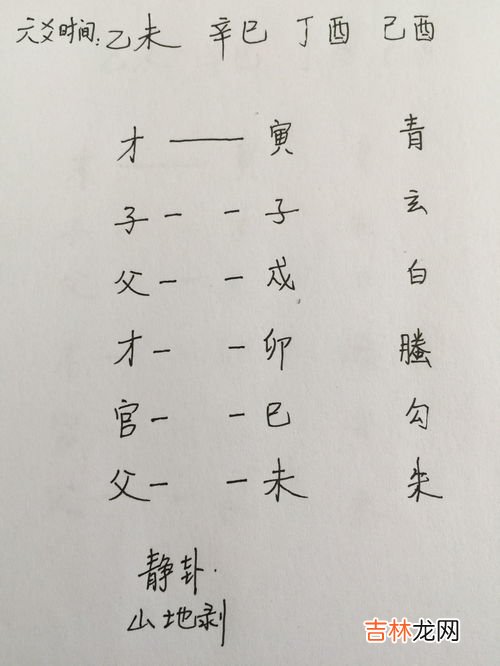 六爻时间:乙未 辛巳 丁酉 己酉
才 寅 青
子 子 玄
父 戌 白
才 卯 螣
官 巳 勾
父 未 朱
静卦.
山地剥
吉林龙网